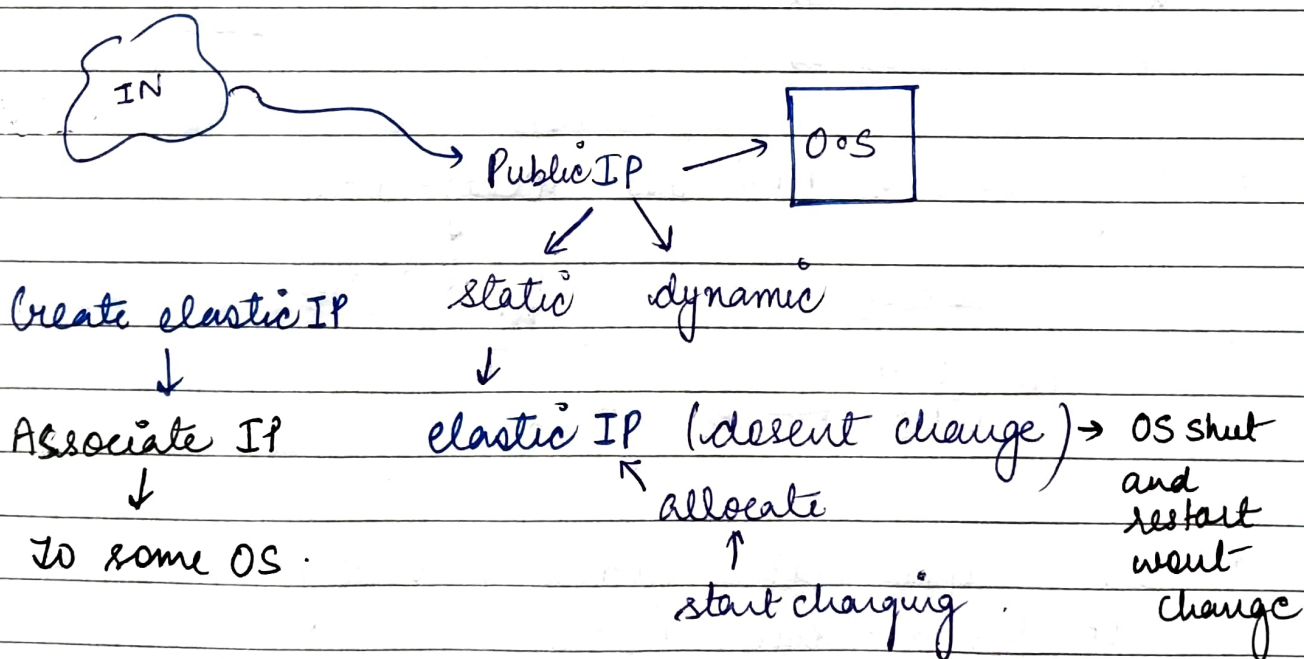 IN
Public IP
O.S
static dynamic
Create elastic IP
Associate IP
To some OS.
elastic IP (dosent change)
OS shut
and
restart
wont
change
allocate
start charging.